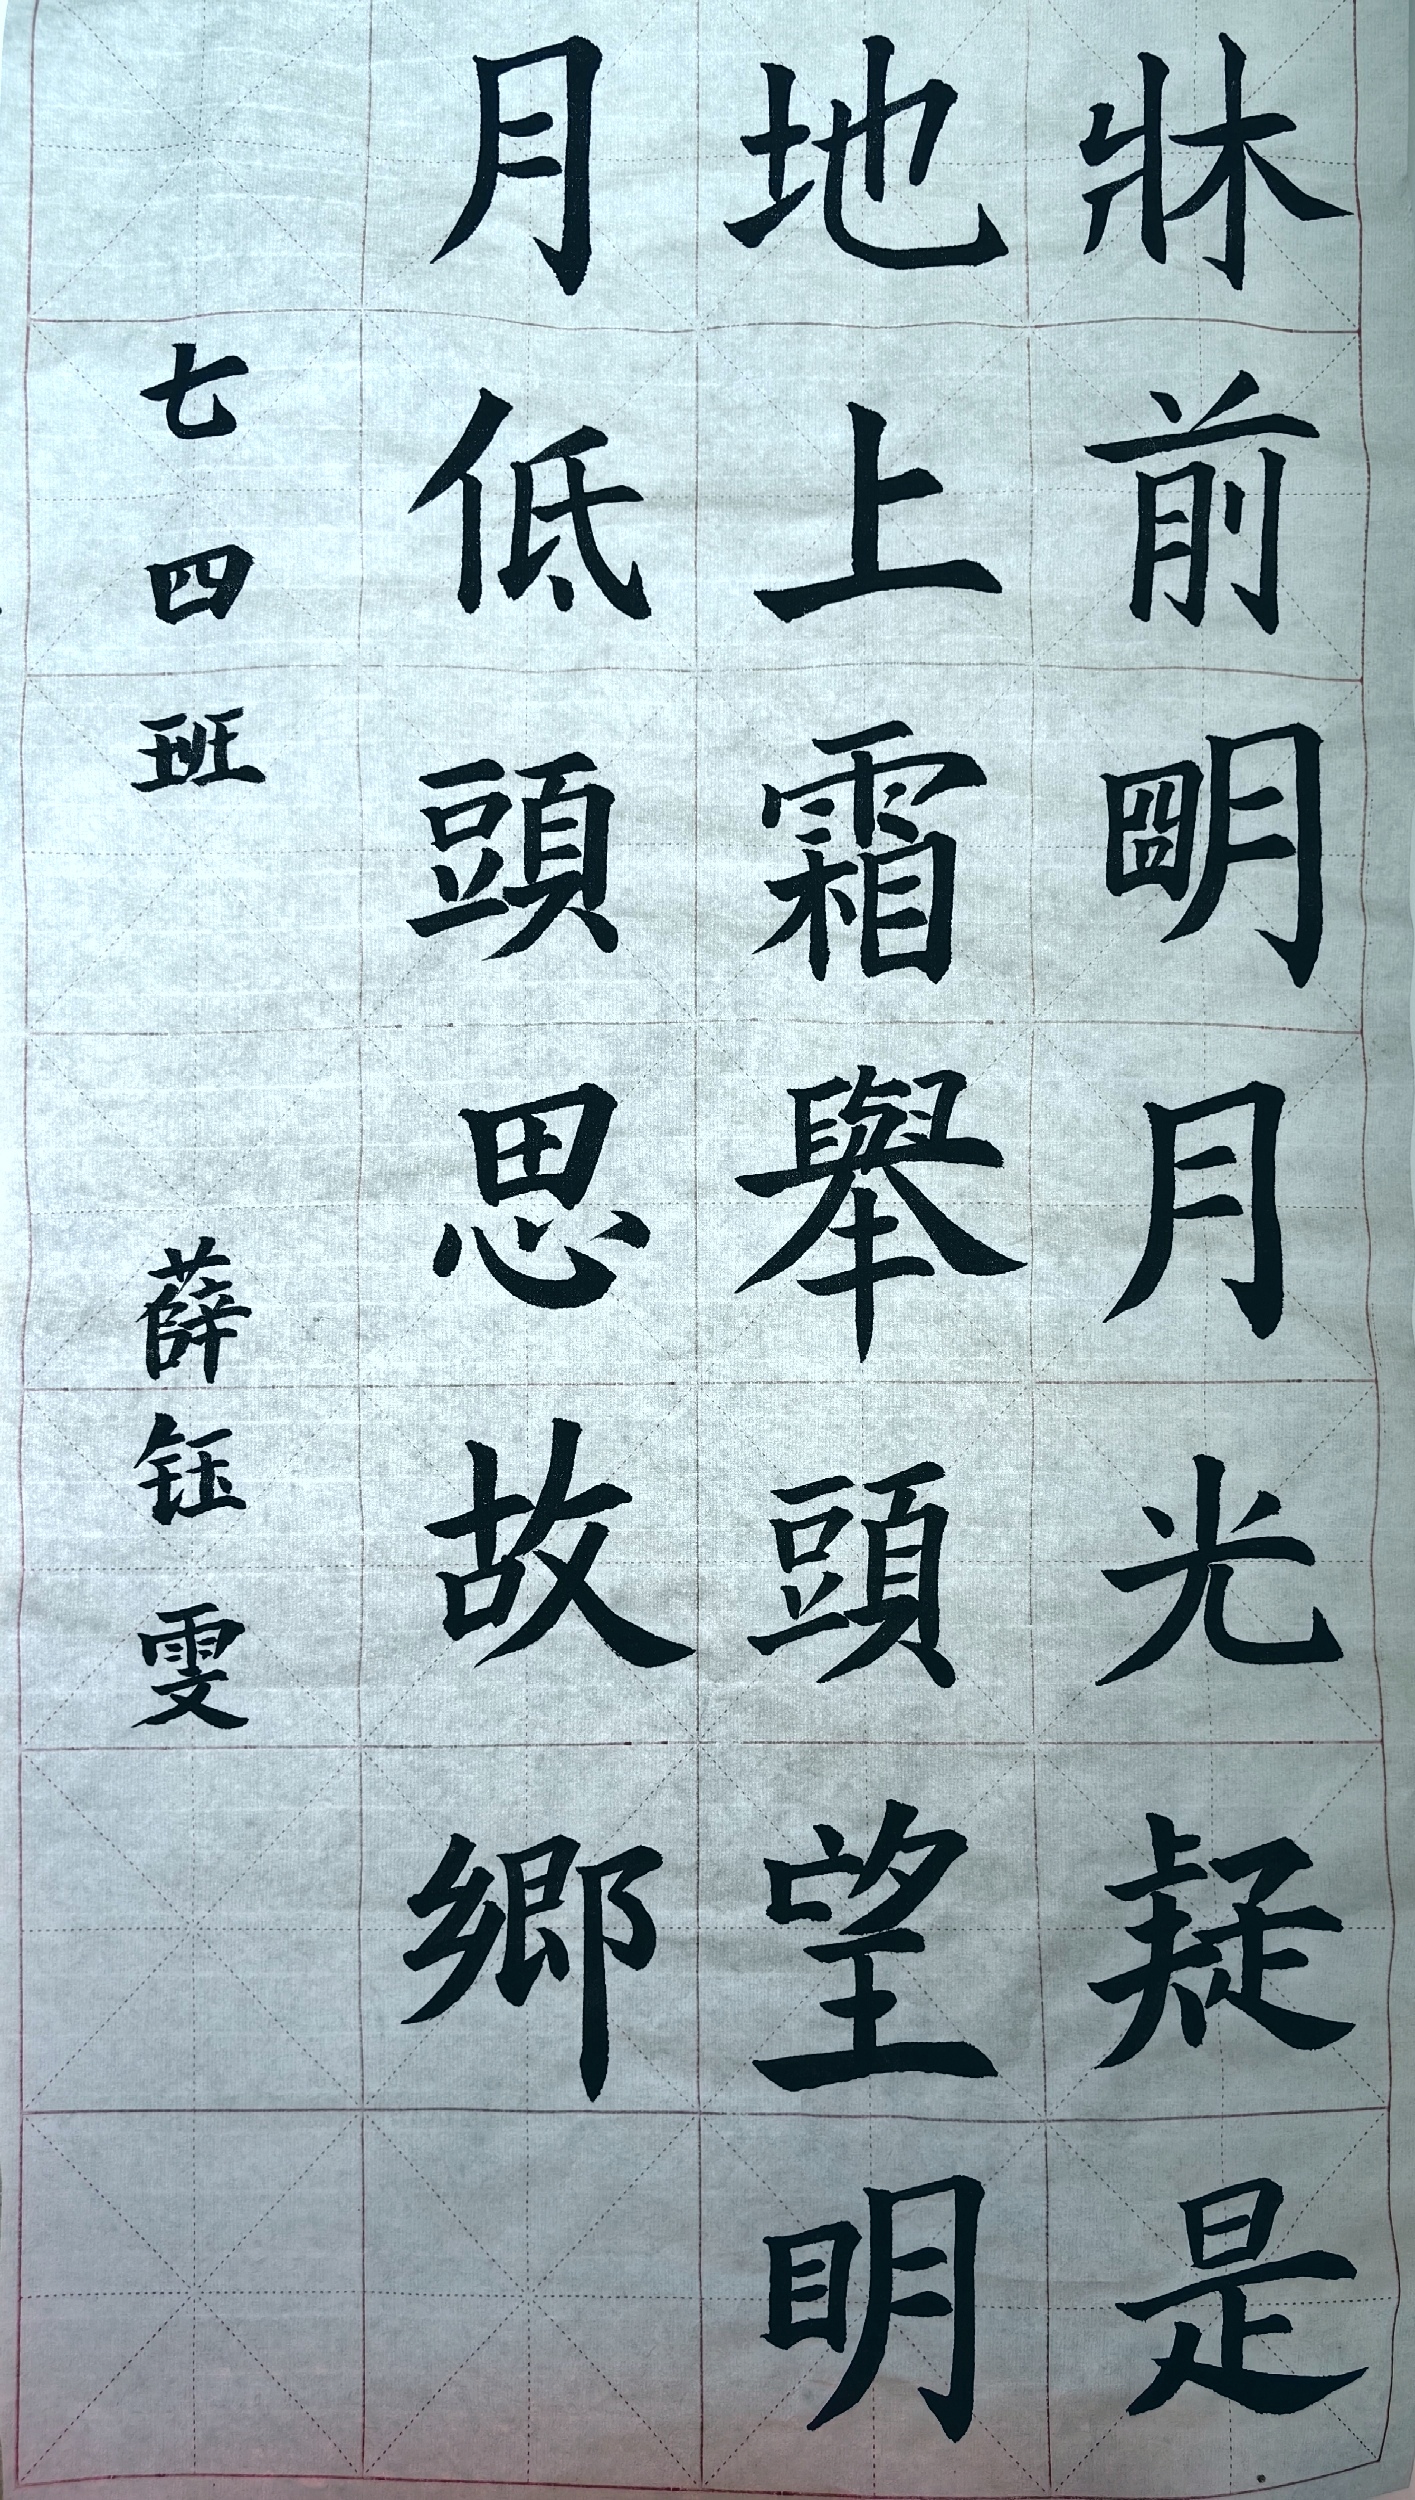 牀前朙月光疑是
地上霜舉頭望明
月低頭思故鄉
七四班 薛钰雯